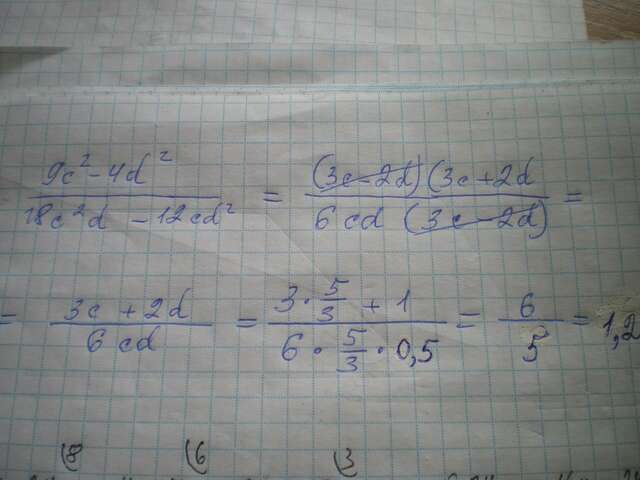 9c² - 4d² / 18c²d - 12cd² = (3c - 2d)(3c + 2d / 6cd (3c - 2d) =
= 3c + 2d / 6cd = 3 · 5/3 + 1 / 6 · 5/3 · 0,5 = 6 / 5 = 1,2
(8 (6 (3